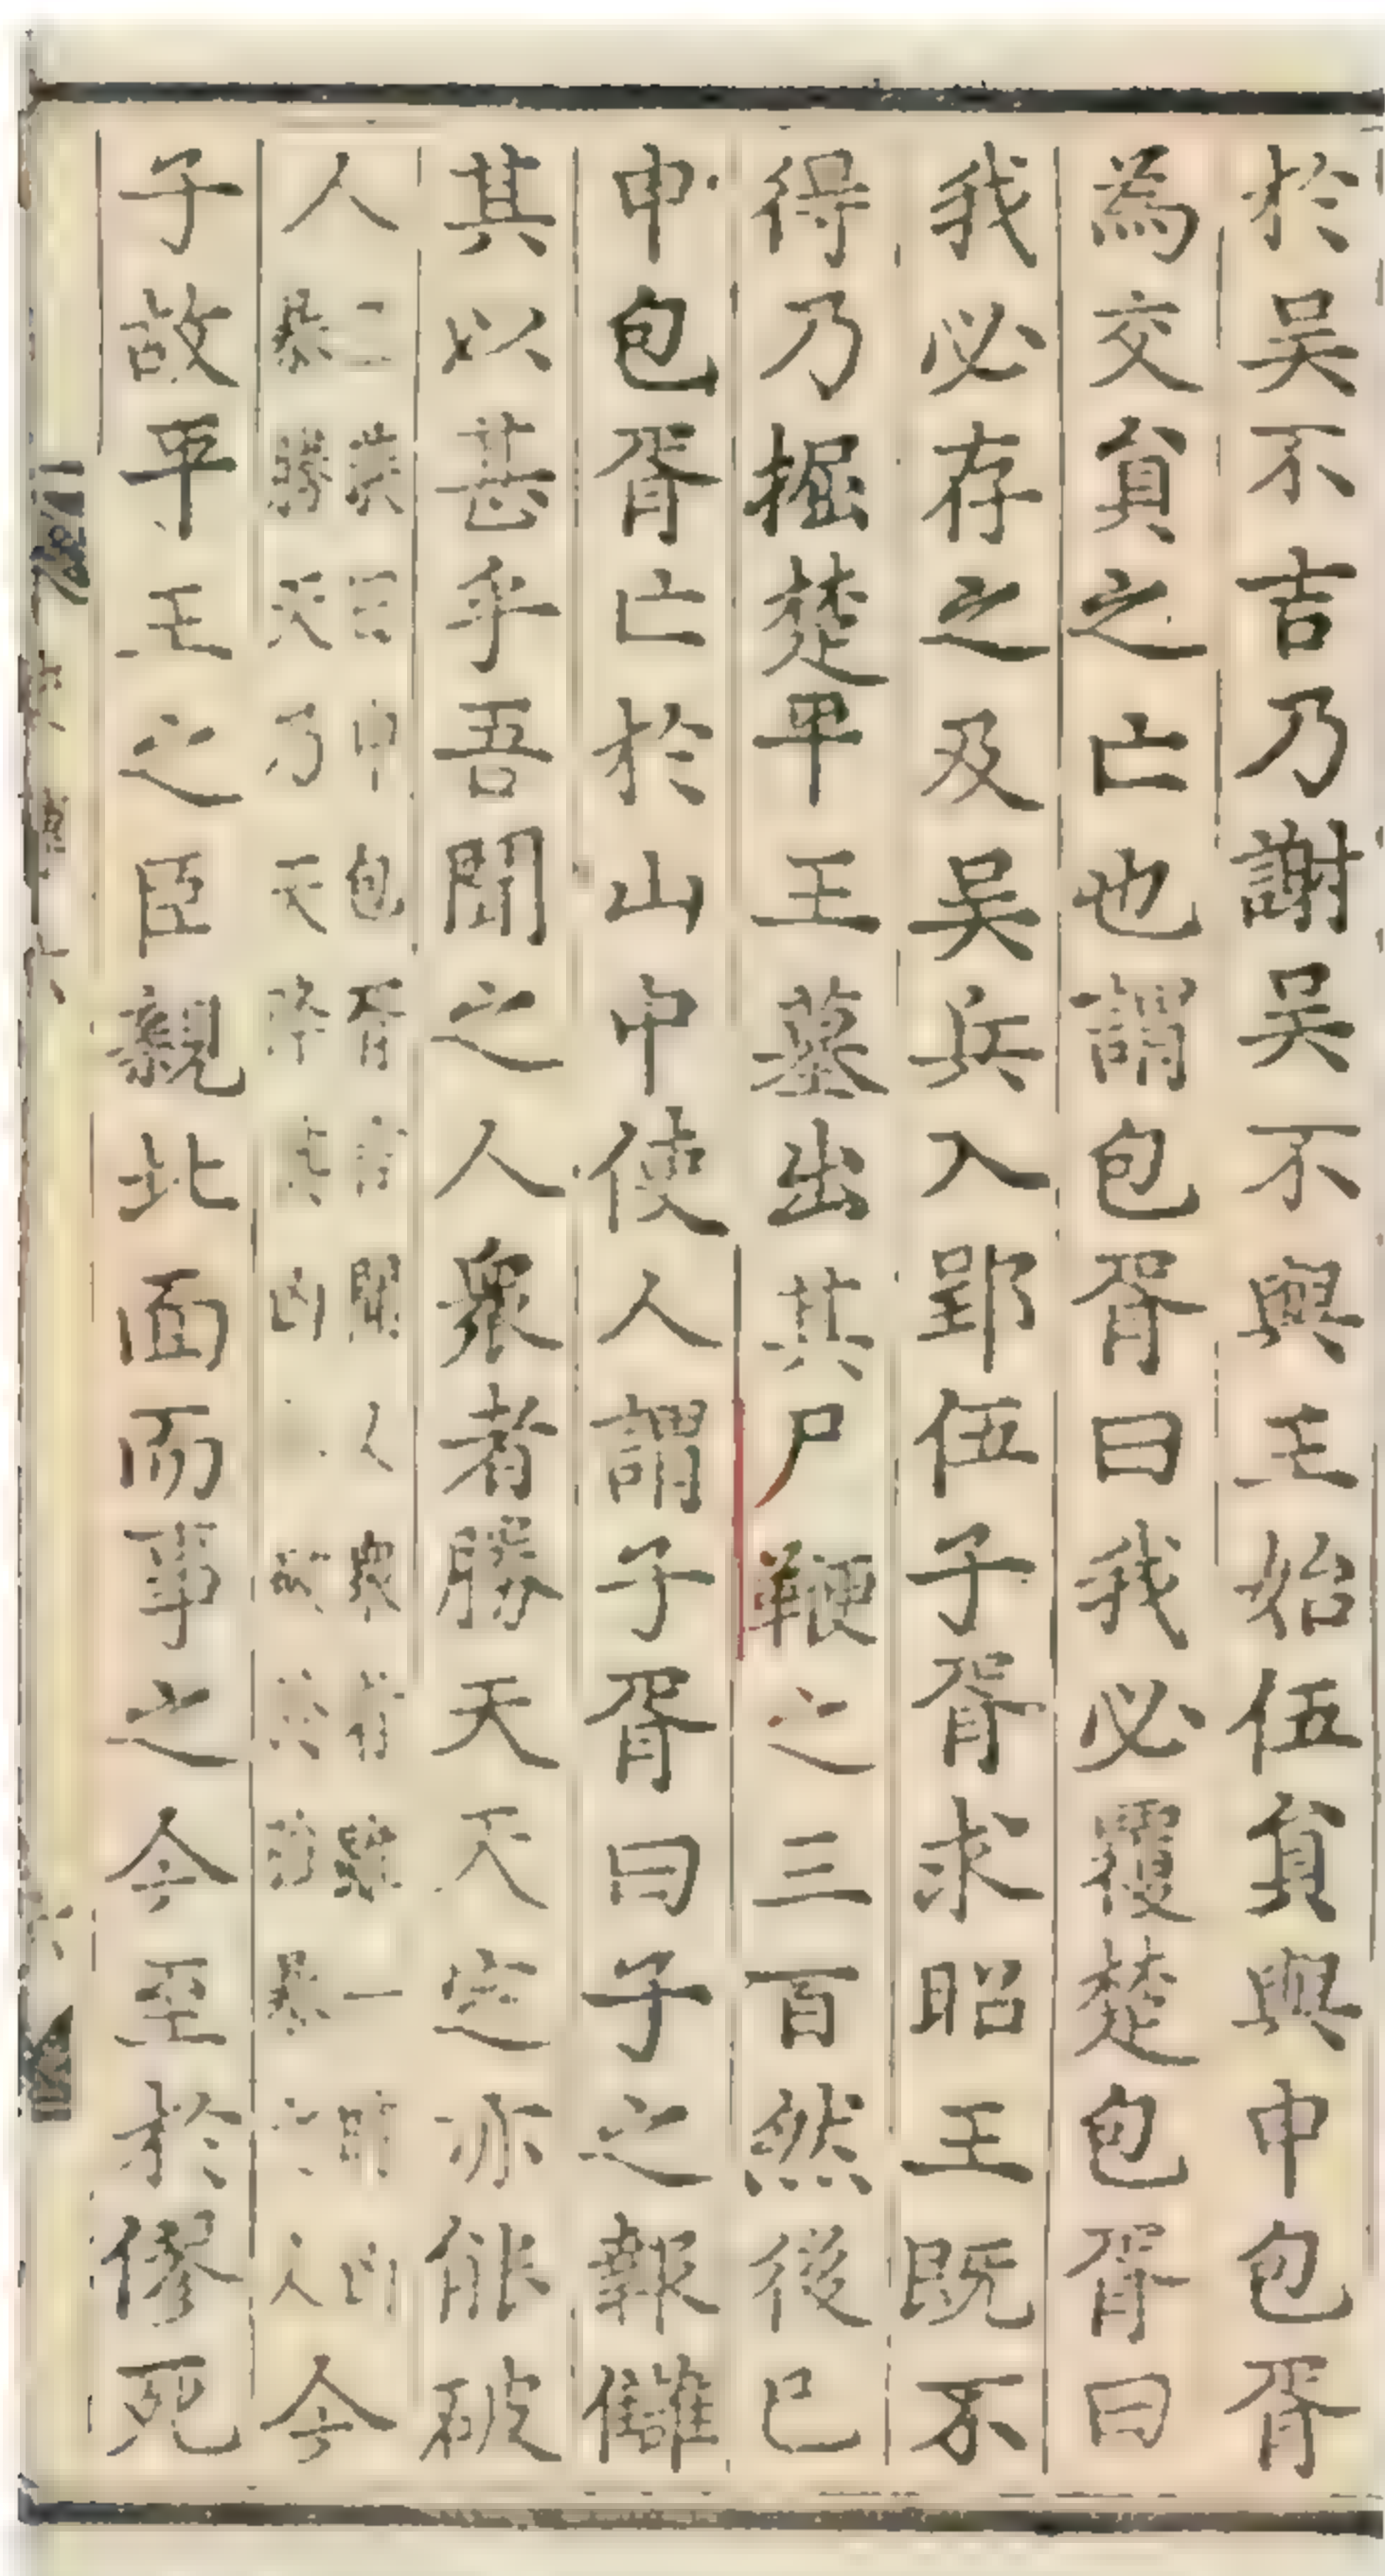 於吳不吉乃謝吳不與王始伍員與申包胥
為交員之亡也謂包胥曰我必覆楚包胥曰
我必存之及吳兵入郢伍子胥求昭王既不
得乃掘楚平王墓出其尸鞭之三百然後已
申包胥亡於山中使人謂子胥曰子之報讎
其以甚乎吾聞之人衆者勝天天定亦能破
人
義曰申包胥言聞人衆者雖一時凶
暴勝天及天降其凶破於彊暴之人
今
子故平王之臣親北面而事之今至於僇死